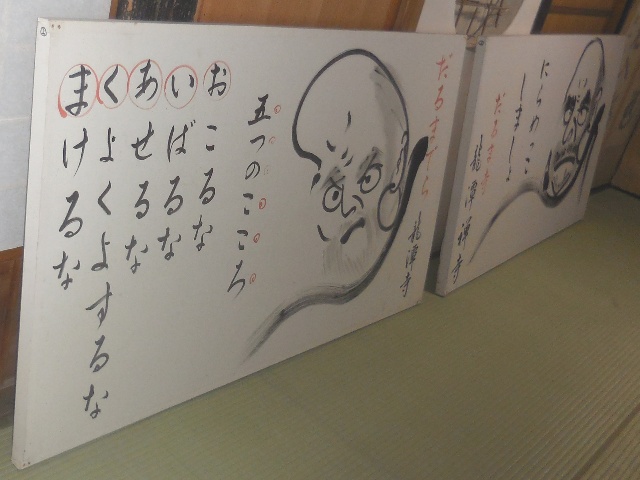 だるまでら 龍潭寺
五つのこころ
おこるな
いばるな
あせるな
くよくよするな
まけるな
にらめっこ
しましょ
だるま寺
龍潭禅寺